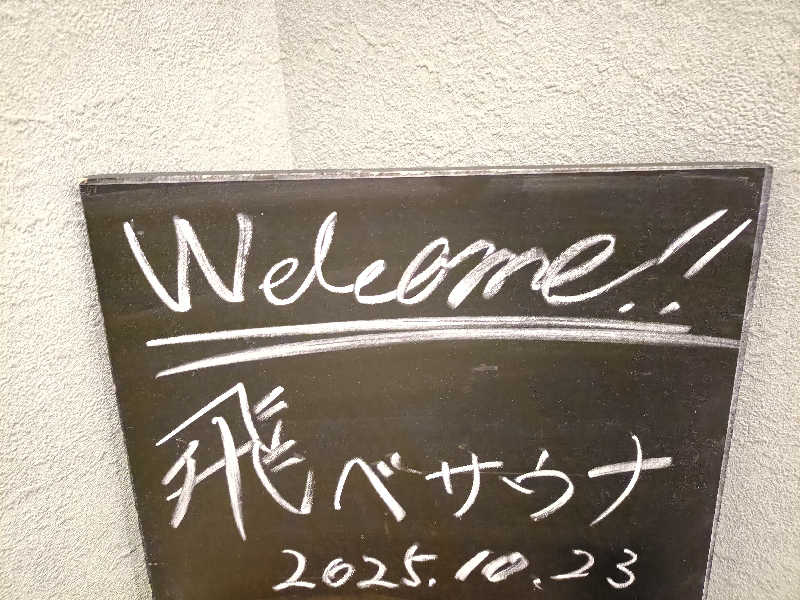 Welcome!!
飛べサウナ
2025.10.23